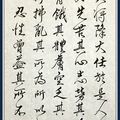 將降大任於是人
先苦其心志勞其
骨餓其體膚空乏其
行拂亂其所為所以
忍性曾益其所不